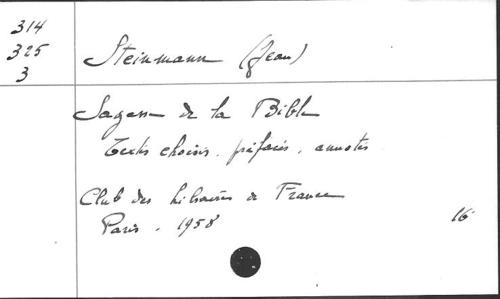 314
325
3
Steinmann (Jean)
Sagesse de la Bible
Textes choisis, préfacés, annotés
Club des libraires de France
Paris. 1958
16